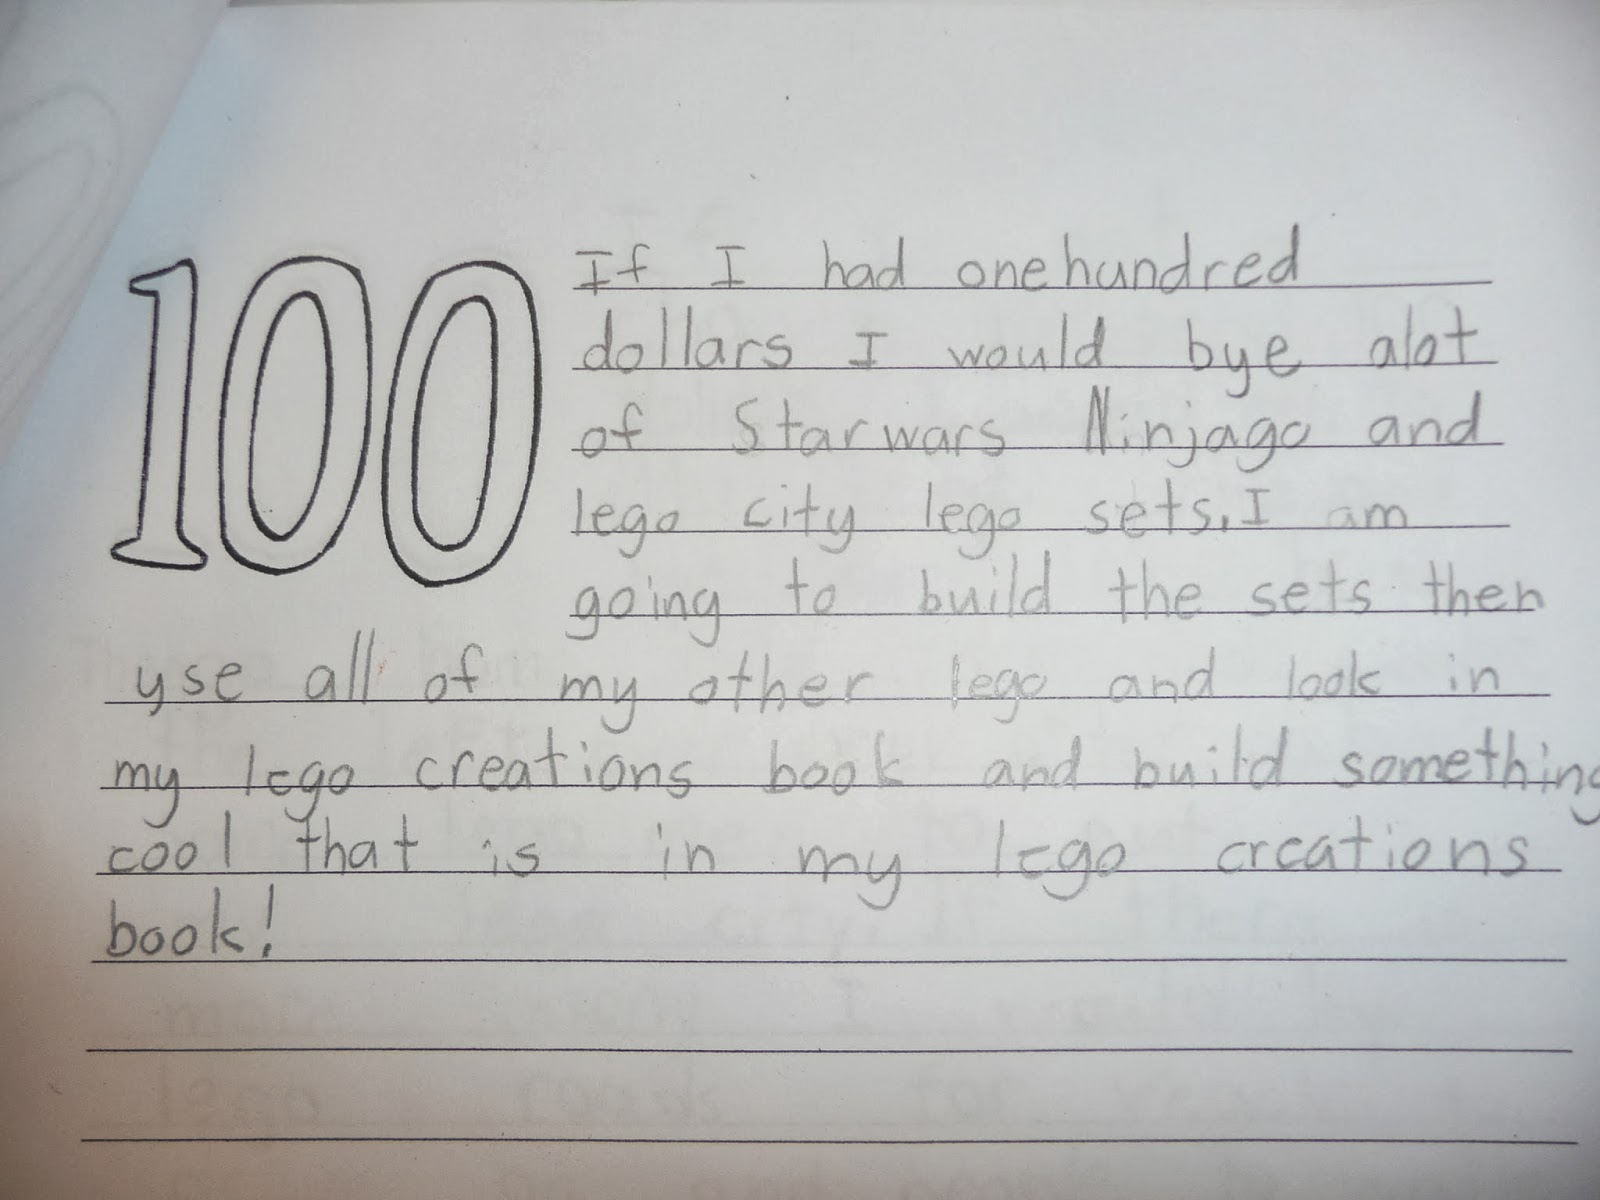 100
If I had onehundred
dollars I would bye alot
of Starwars Ninjago and
lego city lego sets. I am
going to build the sets then
yse all of my other lego and look in
my lego creations book and build something
cool that is in my lego creations
book!